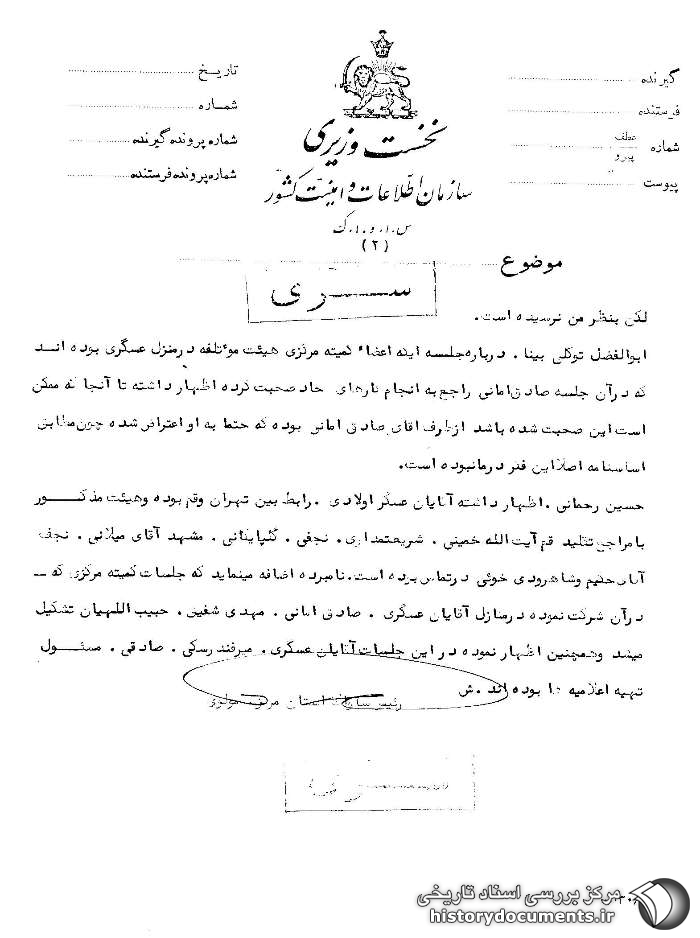 گیرنده
فرستنده
شماره عطف پیرو
پیوست
تاریخ
شماره
شماره پرونده گیرنده
شماره پرونده فرستنده
نخست وزیری
سازمان اطلاعات و امنیت کشور
س.ا.و.ا.ک
(۲)
موضوع
سری
لکن بنظر من نرسیده است.
ابوالفضل توکلی بینا . درباره جلسه ایکه اعضاء کمیته مرکزی هیئت موئتلفه درمنزل عسگری بوده اند
که درآن جلسه صادق امانی راجع به انجام کارهای حاد صحبت کرده اظهار داشته تا آنجا که ممکن
است این صحبت شده باشد ازطرف آقای صادق امانی بوده که حتما به او اعتراض شده چون مطابق
اساسنامه اصلا این فکر درما نبوده است.
حسین رحمانی . اظهار داشته آقایان عسگر اولادی . رابط بین تهران وقم بوده وهیئت مذکور
با مراجع تقلید قم آیت الله خمینی . شریعتمداری . نجفی . گلپایگانی . مشهد آقای میلانی . نجف
آقای حکیم وشاهرودی خوئی درتماس بوده است.نامبرده اضافه مینماید که جلسات کمیته مرکزی که ــ
درآن شرکت نموده درمنازل آقایان عسگری . صادق امانی . مهدی شفیق . حبیب اللهیان تشکیل
میشد وهمچنین اظهار نموده در این جلسات آقایان عسگری . میرفندرسکی . صادقی . مسئول
تهیه اعلامیه ها بوده اند .ش
رئیس
مرکز بررسی اسناد تاریخی
historydocuments.ir